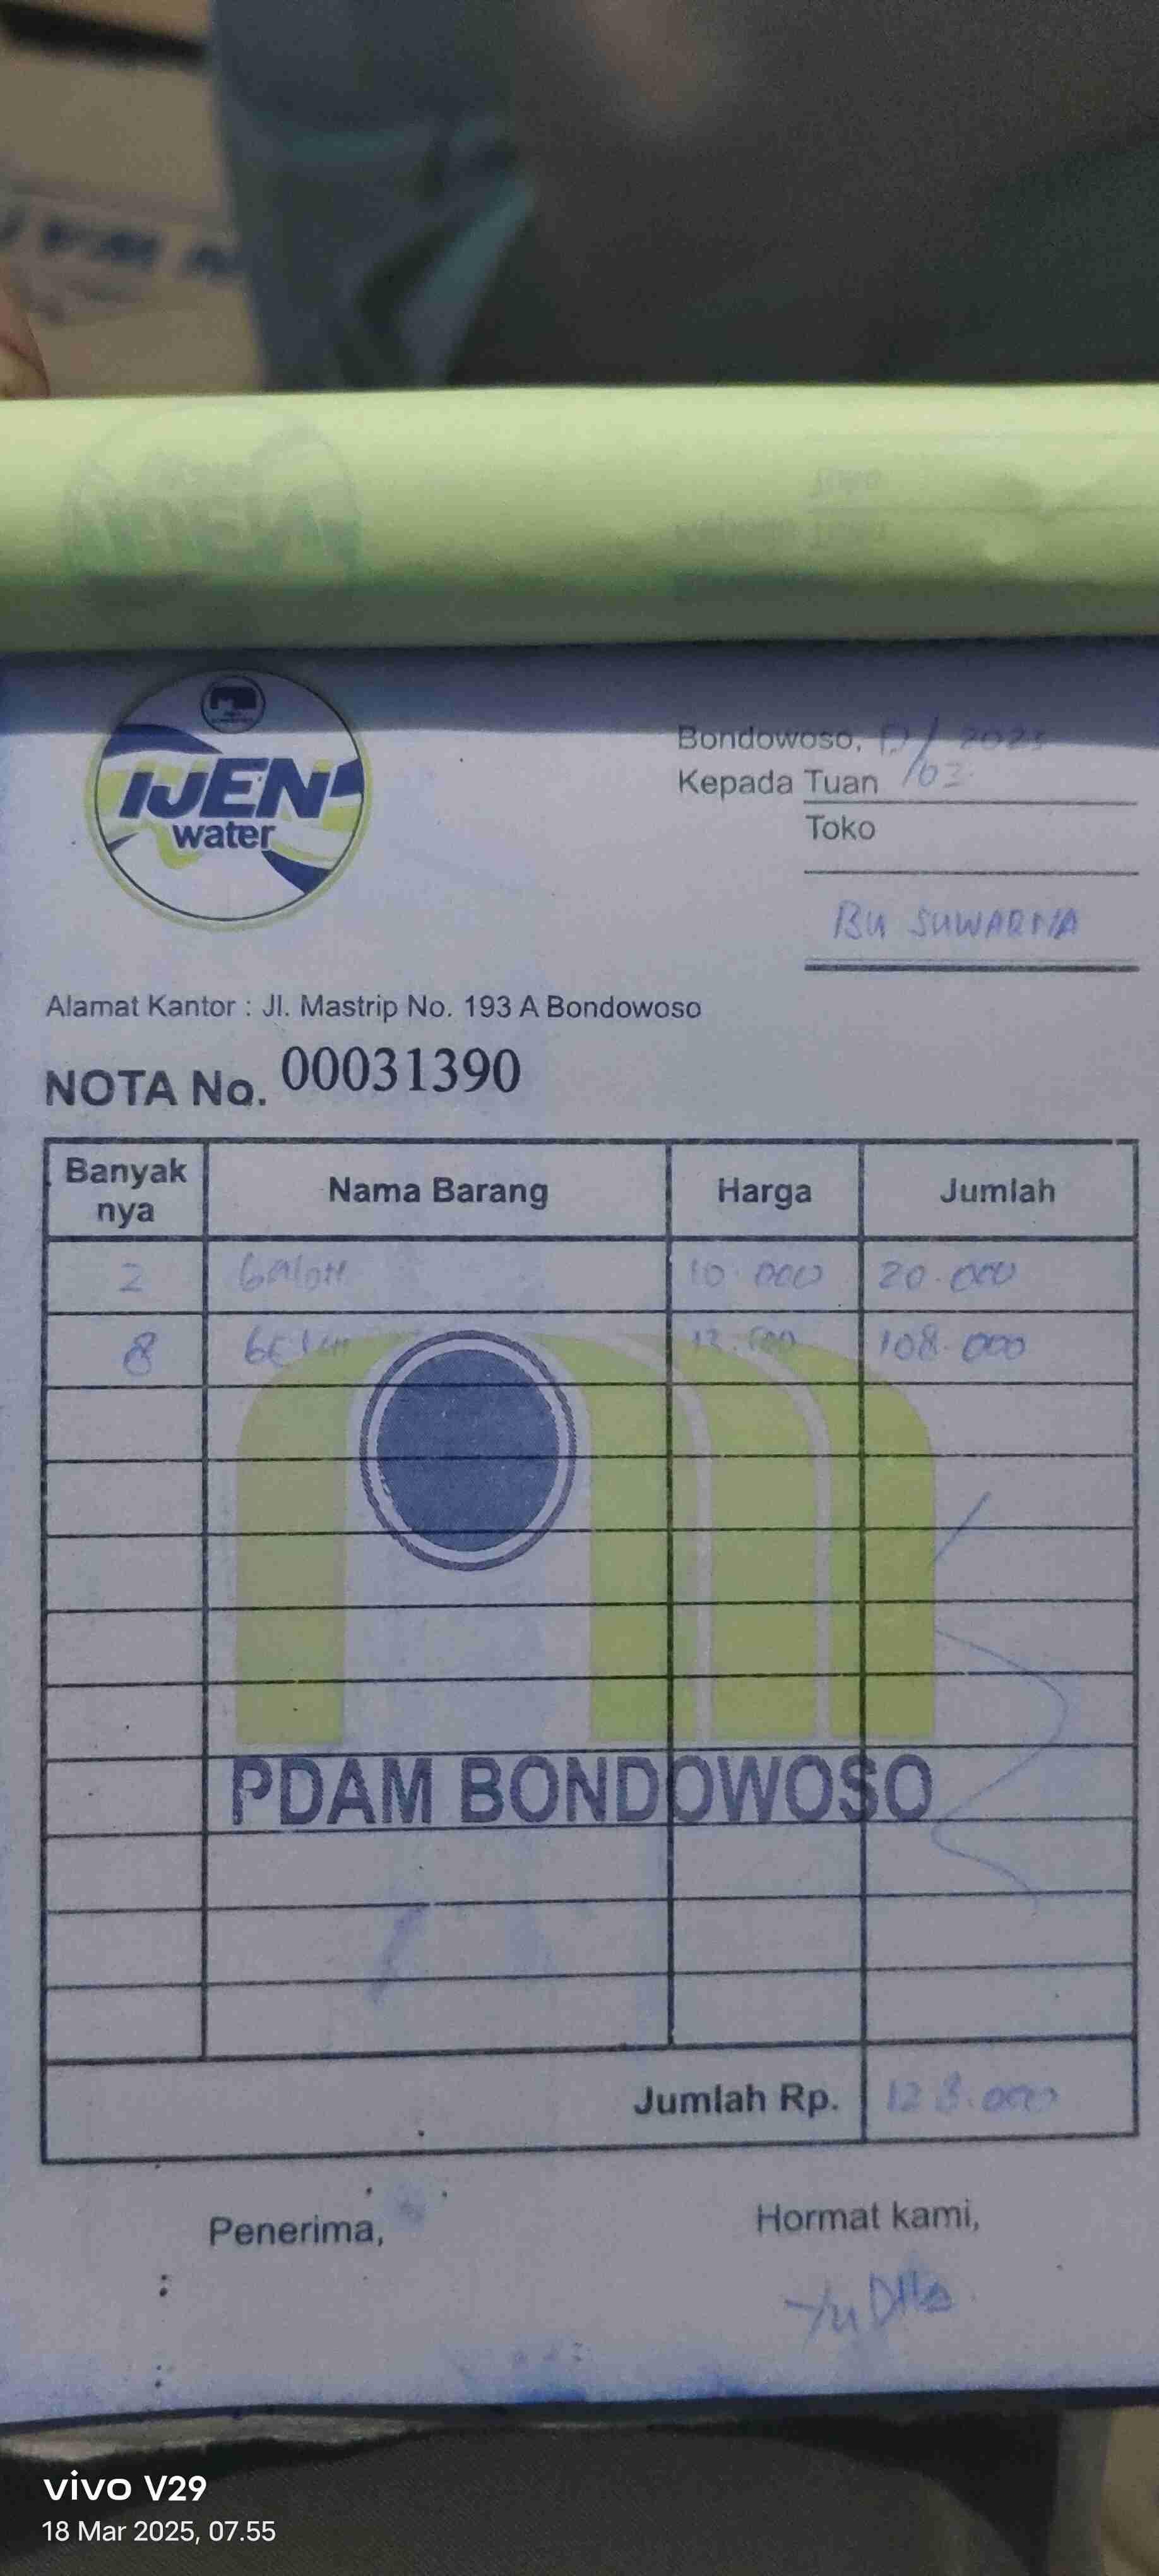 IJEN
water
Bondowoso, 17/03 2025
Kepada Tuan
Toko
BU SUWARNA
Alamat Kantor : Jl. Mastrip No. 193 A Bondowoso
NOTA No. 00031390
Banyak nya Nama Barang Harga Jumlah
2 Galon 10.000 20.000
8 13.500 108.000
PDAM BONDOWOSO
Jumlah Rp. 128.000
Penerima, Hormat kami,
vivo V29
18 Mar 2025, 07.55